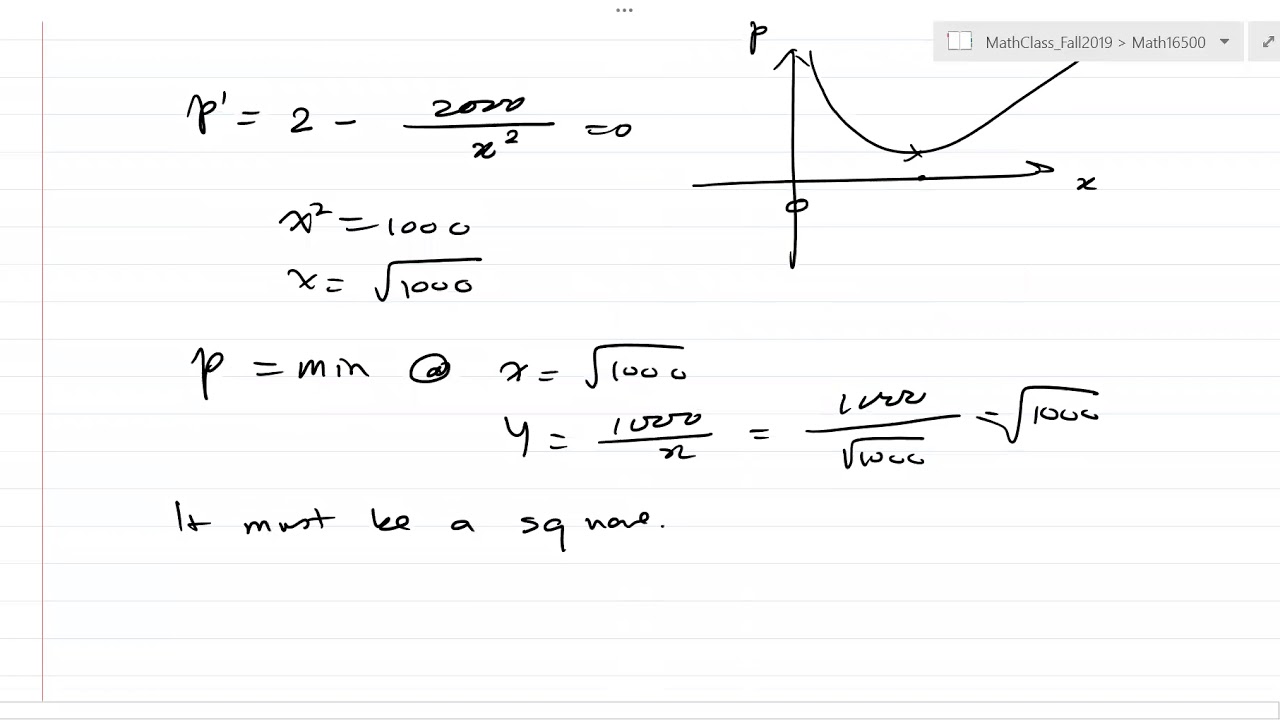 MathClass_Fall2019 > Math16500
p
x
0
p' = 2 - 2000/x² = 0
x² = 1000
x = √1000
p = min @ x = √1000
y = 1000/x = 1000/√1000 = √1000
It must be a square.